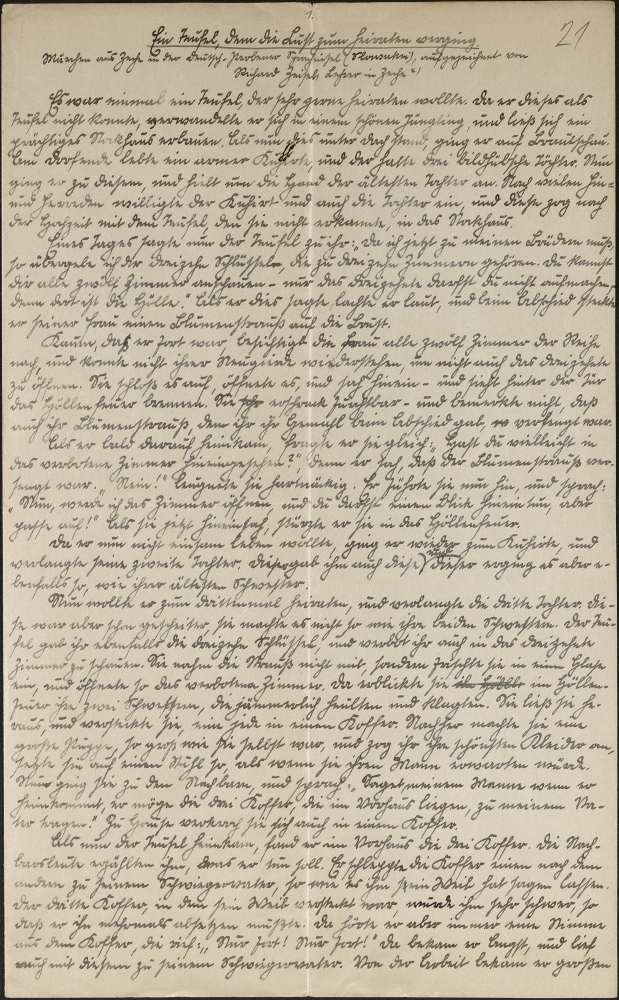 1.
21
Ein Teufel, dem die Lust zum Heiraten verging
Märchen aus Zeche in der deutsch-Probener Sprachinsel (Slowakei), aufgezeichnet von
Richard Zeisel, Lehrer in Zeche
Es war einmal ein Teufel, der sehr gerne heiraten wollte. Da er dieses als
Teufel nicht konnte, verwandelte er sich in einen schönen Jüngling, und ließ sich ein
prächtiges Stockhaus erbauen. Als nun dies unter Dach stand, ging er auf Brautschau.
Am Dorfende lebte ein armer Kuhhirte, und der hatte drei bildhübsche Töchter. Nun
ging er zu diesem, und hielt um die Hand der ältesten Tochter an. Nach vielen Hin-
und Herreden willigte der Kuhhirt und auch die Tochter ein, und diese zog nach
der Hochzeit mit dem Teufel, den sie nicht erkannte, in das Stockhaus.
Eines Tages sagte nun der Teufel zu ihr: „Da ich jetzt zu meinen Brüdern muß,
so übergebe ich dir dreizehn Schlüssel die zu dreizehn Zimmern gehören. Du kannst
dir alle zwölf Zimmer anschauen - nur das dreizehnte darfst du nicht aufmachen,
denn dort ist die Hölle." Als er dies sagte, lachte er laut, und beim Abschied steckte
er seiner Frau einen Blumenstrauß auf die Brust.
Kaum, daß er fort war, besichtigt die Frau alle zwölf Zimmer der Reihe
nach, und konnte nicht ihrer Neugierde wiederstehen, um nicht auch das dreizehnte
zu öffnen. Sie schloß es auf, öffnete es, und sah hinein - und sieht hinter der Tür
das Höllenfeuer brennen. Sie erschrack furchtbar - und bemerkte nicht, daß
auch ihr Blumenstrauß, den ihr ihr Gemahl beim Abschied gab, versengt war.
Als er bald darauf heimkam, fragte er sie gleich: „Hast du vielleicht in
das verbotene Zimmer hineingesehen?", denn er sah, daß der Blumenstrauß ver-
sengt war. „Nein!" leugnete sie hartnäckig. Er führte sie nun hin, und sprach:
„Nun, werde ich das Zimmer öffnen, und du darfst einen Blick hineintun, aber
passe auf!" Als sie jetzt hineinsah, stürzte er sie in das Höllenfeuer.
Da er nun nicht einsam leben wollte, ging er wieder zum Kuhhirte, und
verlangte seine zweite Tochter. Dieser gab ihm auch diese, und dieser erging es aber e-
benfalls so, wie ihrer ältesten Schwester.
Nun wollte er zum drittenmal heiraten, und verlangte die dritte Tochter. Die-
se war aber schon gescheiter, sie machte es nicht so wie ihre beiden Schwestern. Der Teu-
fel gab ihr ebenfalls die dreizehn Schlüssel, und verbot ihr auch in das dreizehnte
Zimmer zu schauen. Sie nahm den Strauß nicht mit, sondern frischte sie in eine Glase
ein, und öffnete so das verbotene Zimmer. Da erblickte sie im Höllen-
feuer ihre zwei Schwestern, die jämmerlich heulten und klagten. Sie ließ sie he-
raus, und versteckte sie, eine jede in einen Koffer. Nachher machte sie eine
große Puppe, so groß wie sie selbst war, und zog ihr ihre schönsten Kleider an,
setzte sie auf einen Stuhl so, als wenn sie ihren Mann erwarten würde.
Nun ging sie zu den Nachbarn, und sprach: „Saget meinem Manne wenn er
heimkommt, er möge die drei Koffer, die im Vorhaus liegen, zu meinem Va-
ter tragen." Zu Hause verkroch sie sich auch in einem Koffer.
Als nun der Teufel heimkam, fand er im Vorhaus die drei Koffer. Die Nach-
barsleute erzählten ihm, was er tun soll. Er schleppte die Koffer einen nach dem
andern zu seinem Schwiegervater, so wie es ihm sein Weib hat sagen lassen.
Der dritte Koffer, in dem sein Weib versteckt war, wurde ihm sehr schwer, so
daß er ihn mehrmals absetzen mußte. Da hörte er aber immer eine Stimme
aus dem Koffer, die rief: „Nur fort! Nur fort!" Da bekam er Angst, und lief
auch mit diesem zu seinem Schwiegervater. Von der Arbeit bekam er großen